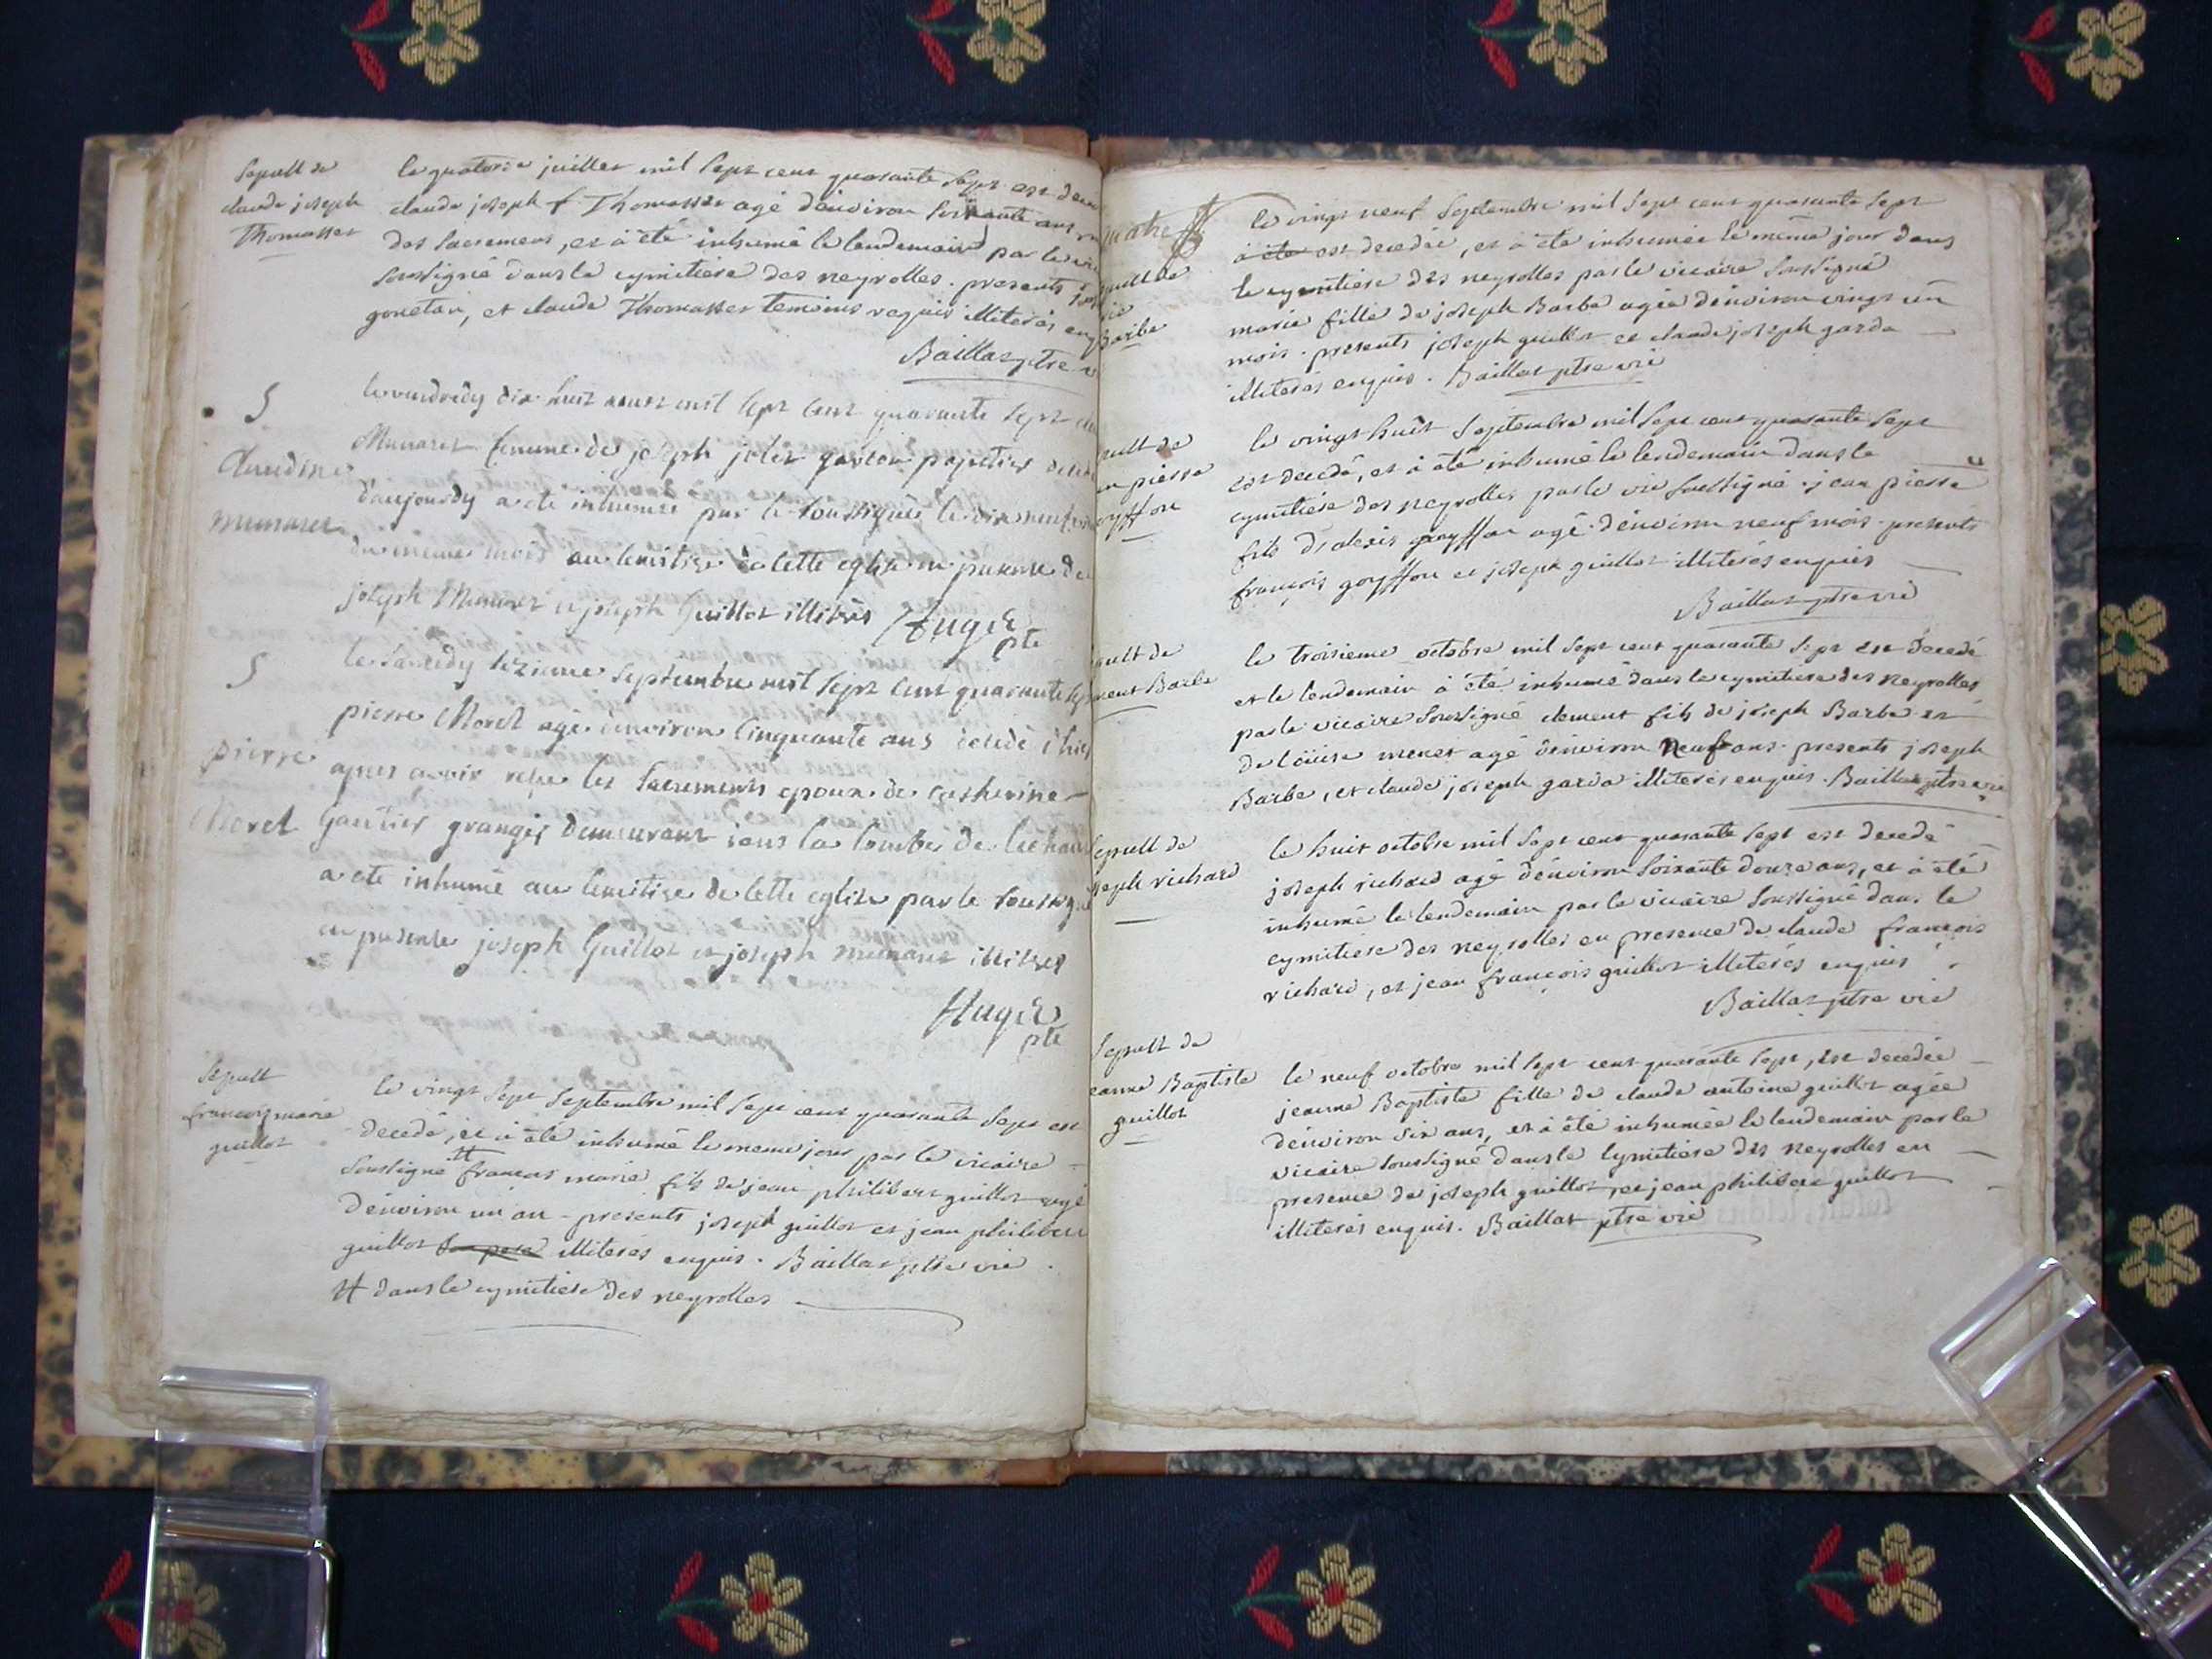 Sepult de
claude joseph
Thomasset
le quatorze juillet mil sept cent quarante sept est
claude joseph f Thomasset agé d'environ soixante ans
des sacremens, et à été inhumé le lendemain par le
soussigné dans le cymitiere des neyrolles. presents
gonetan, et claude Thomasset temoins requis illiterés
Baillat ptre
S
Claudine
munaret
le vendredy dix huit aoust mil sept cent quarante sept
Munaret femme de joseph jolet garcon papetier
d'aujourdy a ete inhumée par le soussigné le dix neuf
du meme mois au cemitire de cette eglise en presence de
joseph Munaret et joseph Guillot illitérés Hugé
ptre
S
pierre
Moret
le samedy seizieme septembre mil sept cent quarante
pierre Moret agé denviron cinquante ans decedé
apres avoir reçu les sacrements epoux de catherine
Gautier granger demeurant sous la combe de
a eté inhumé au cemitire de cette eglise par le
en presence joseph Guillot et joseph munaret illitérés
Hugé
ptre
Sepult
françois marie
guillot
le vingt sept septembre mil sept cent quarante sept est
decedé, et à été inhumé le meme jour par le vicaire
soussigné # francois marie fils de jean philibert guillot agé
d'environ un an - presents joseph guillot et jean philibert
guillot illiterés enquis. Baillat ptre vic
# dans le cymitiere des neyrolles
quatre
Barbe
le vingt neuf septembre mil sept cent quarante sept
à été est decedée, et à été inhumée le même jour dans
le cymitiere des neyrolles par le vicaire soussigné
marie fille de joseph Barbe agée d'environ vingt un
mois. presents joseph guillot et claude joseph garda
illiterés enquis. Baillat ptre vic
pult de
pierre
le vingt huit septembre mil sept cent quarante sept
est decedé, et à été inhumé le lendemain dans le
cymitiere des neyrolles par le vic soussigné. jean pierre
fils d'alexis goyffon agé d'environ neuf mois. presents
françois goyffon et joseph guillot illiterés enquis
Baillat ptre vic
pult de
ment Barbe
le troisieme octobre mil sept cent quarante sept est decedé
et le lendemain à été inhumé dans le cymitiere des neyrolles
par le vicaire soussigné clement fils de joseph Barbe et
de loüise meret agé d'environ neuf ans. presents joseph
Barbe, et claude joseph garda illiterés enquis. Baillat ptre vic
sepult de
joseph richard
le huit octobre mil sept cent quarante sept est decedé
joseph richard agé d'environ soixante douze ans, et à été
inhumé le lendemain par le vicaire soussigné dans le
cymitiere des neyrolles en presence de claude françois
richard, et jean françois guillot illiterés enquis.
Baillat ptre vic
Sepult de
jeanne Baptiste
guillot
le neuf octobre mil sept cent quarante sept, est decedée
jeanne Baptiste fille de claude antoine guillot agée
d'environ six ans, et à été inhumée le lendemain par le
vicaire soussigné dans le cymitiere des neyrolles en
presence de joseph guillot, et jean philibert guillot
illiterés enquis. Baillat ptre vic